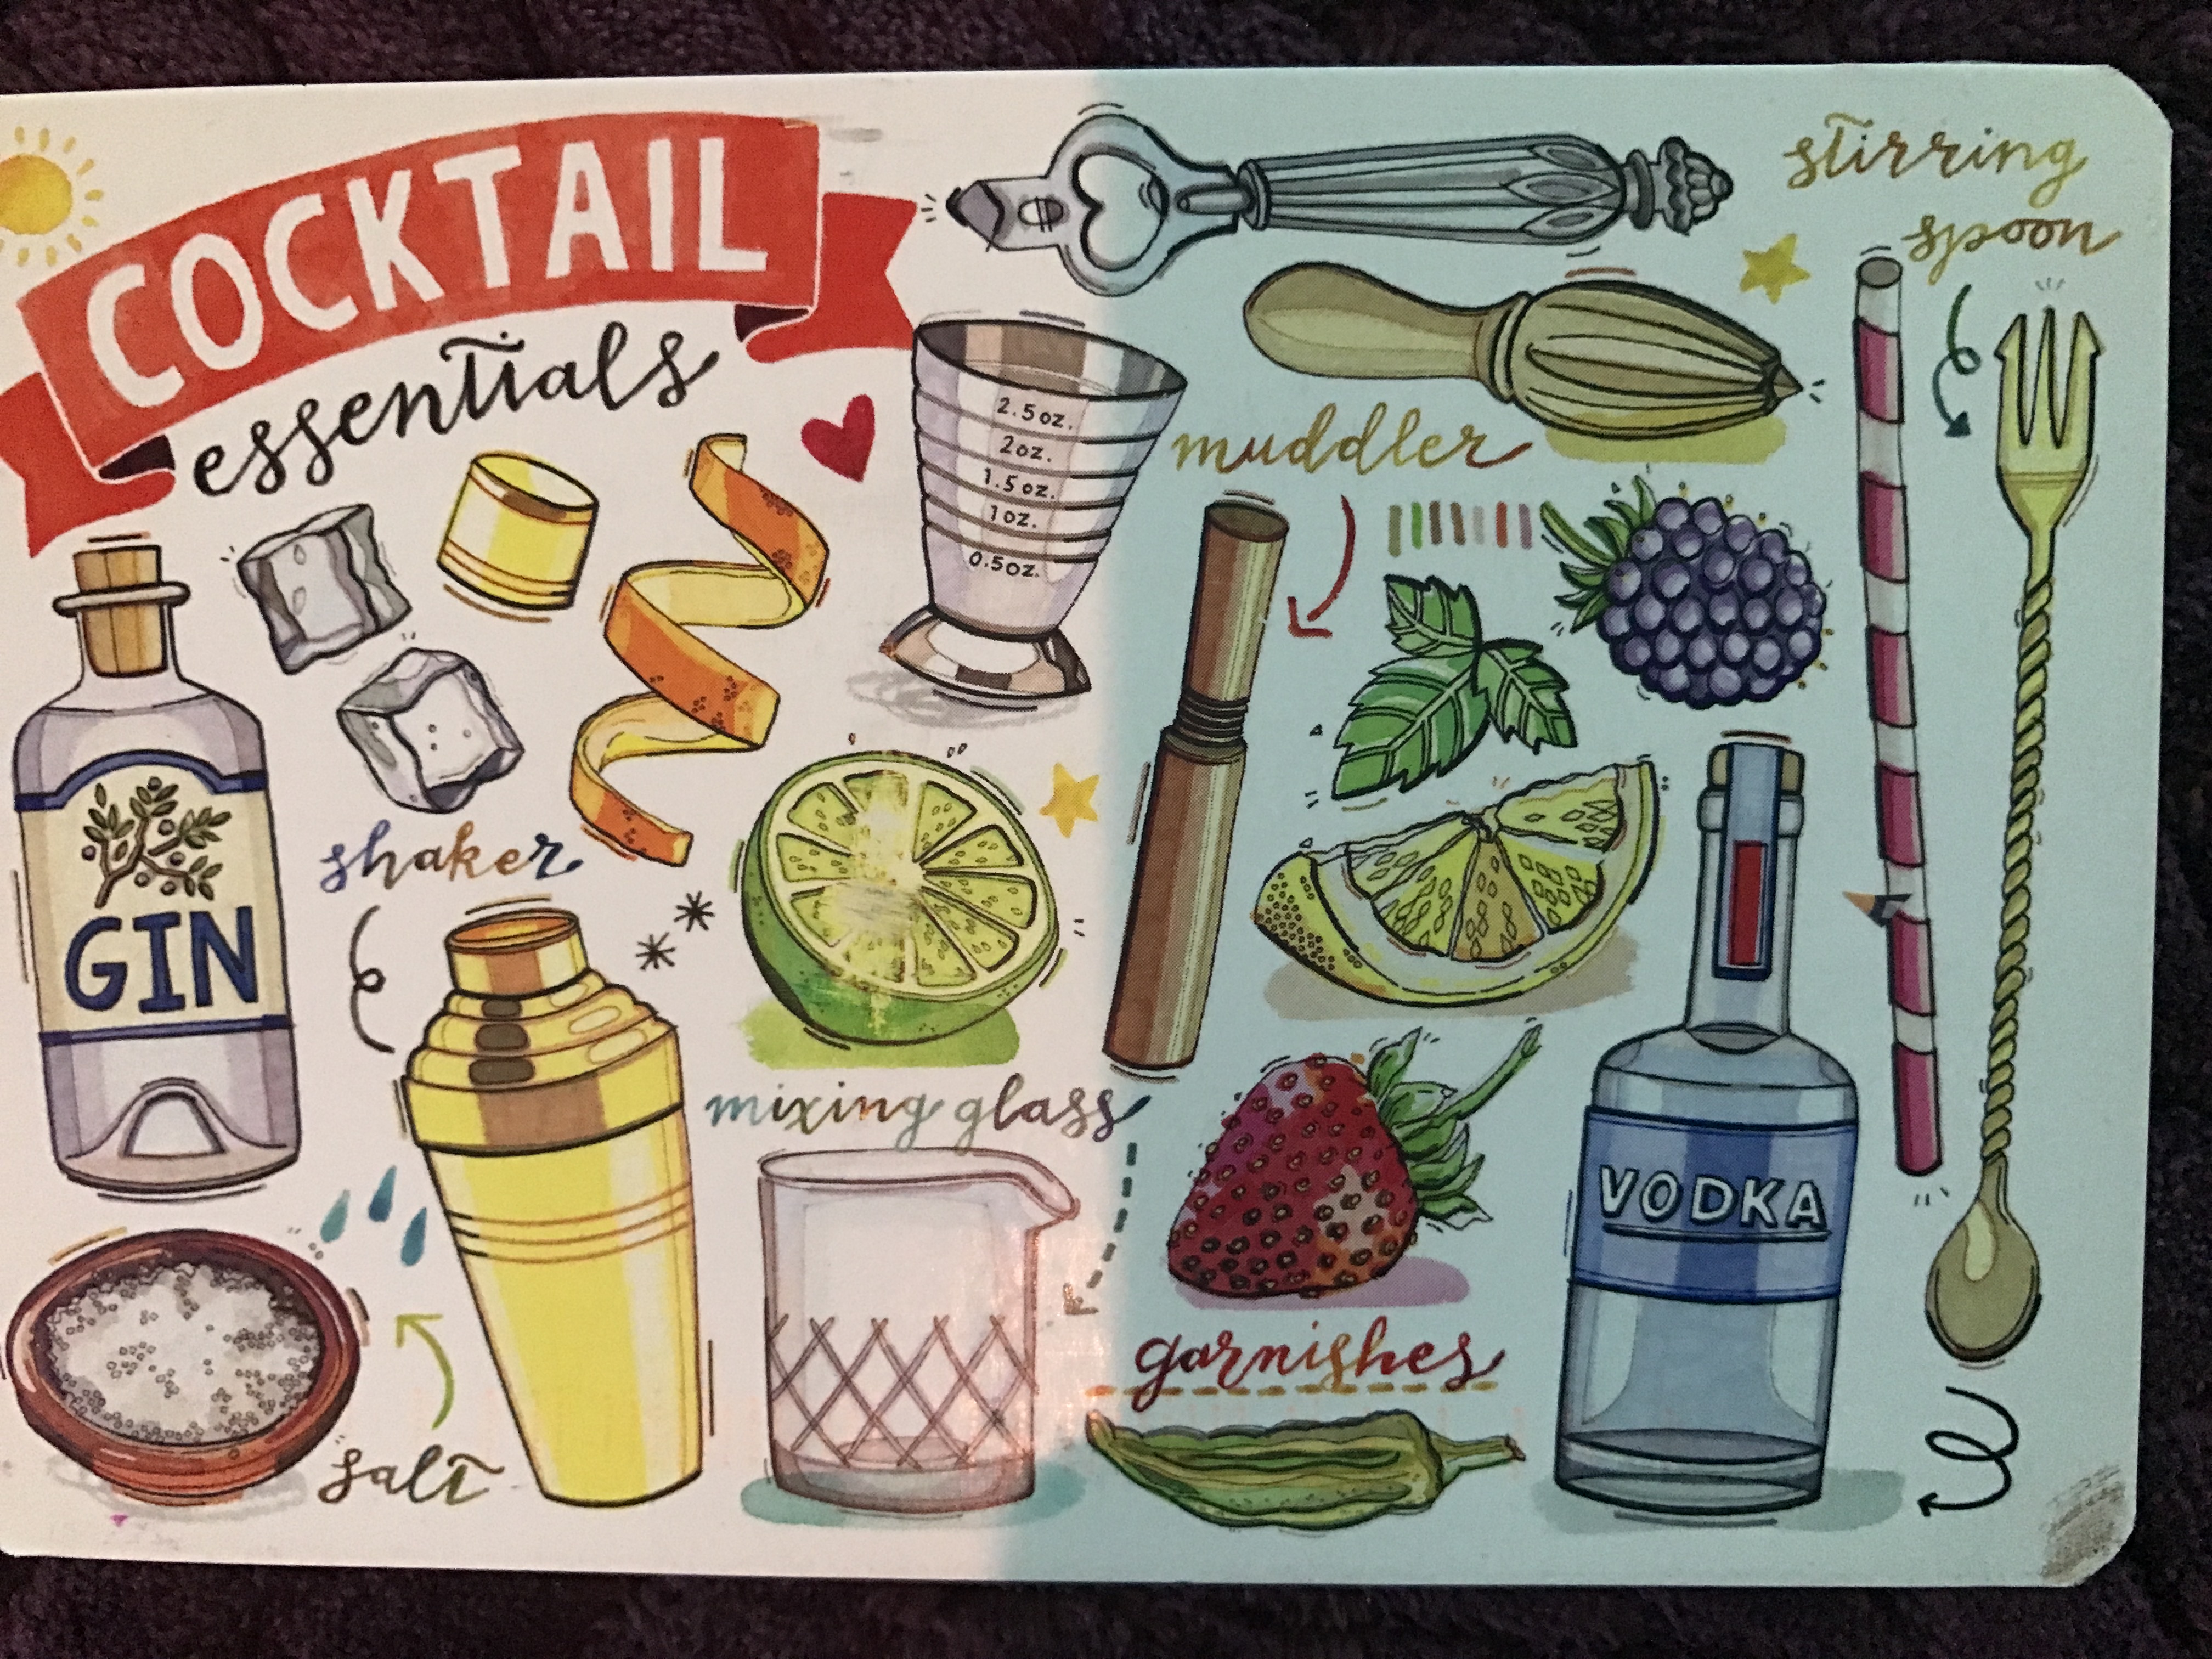 COCKTAIL
essentials
stirring
spoon
2.5oz.
2oz.
1.5oz.
1oz.
0.5oz.
muddler
shaker
GIN
mixing glass
VODKA
garnishes
salt